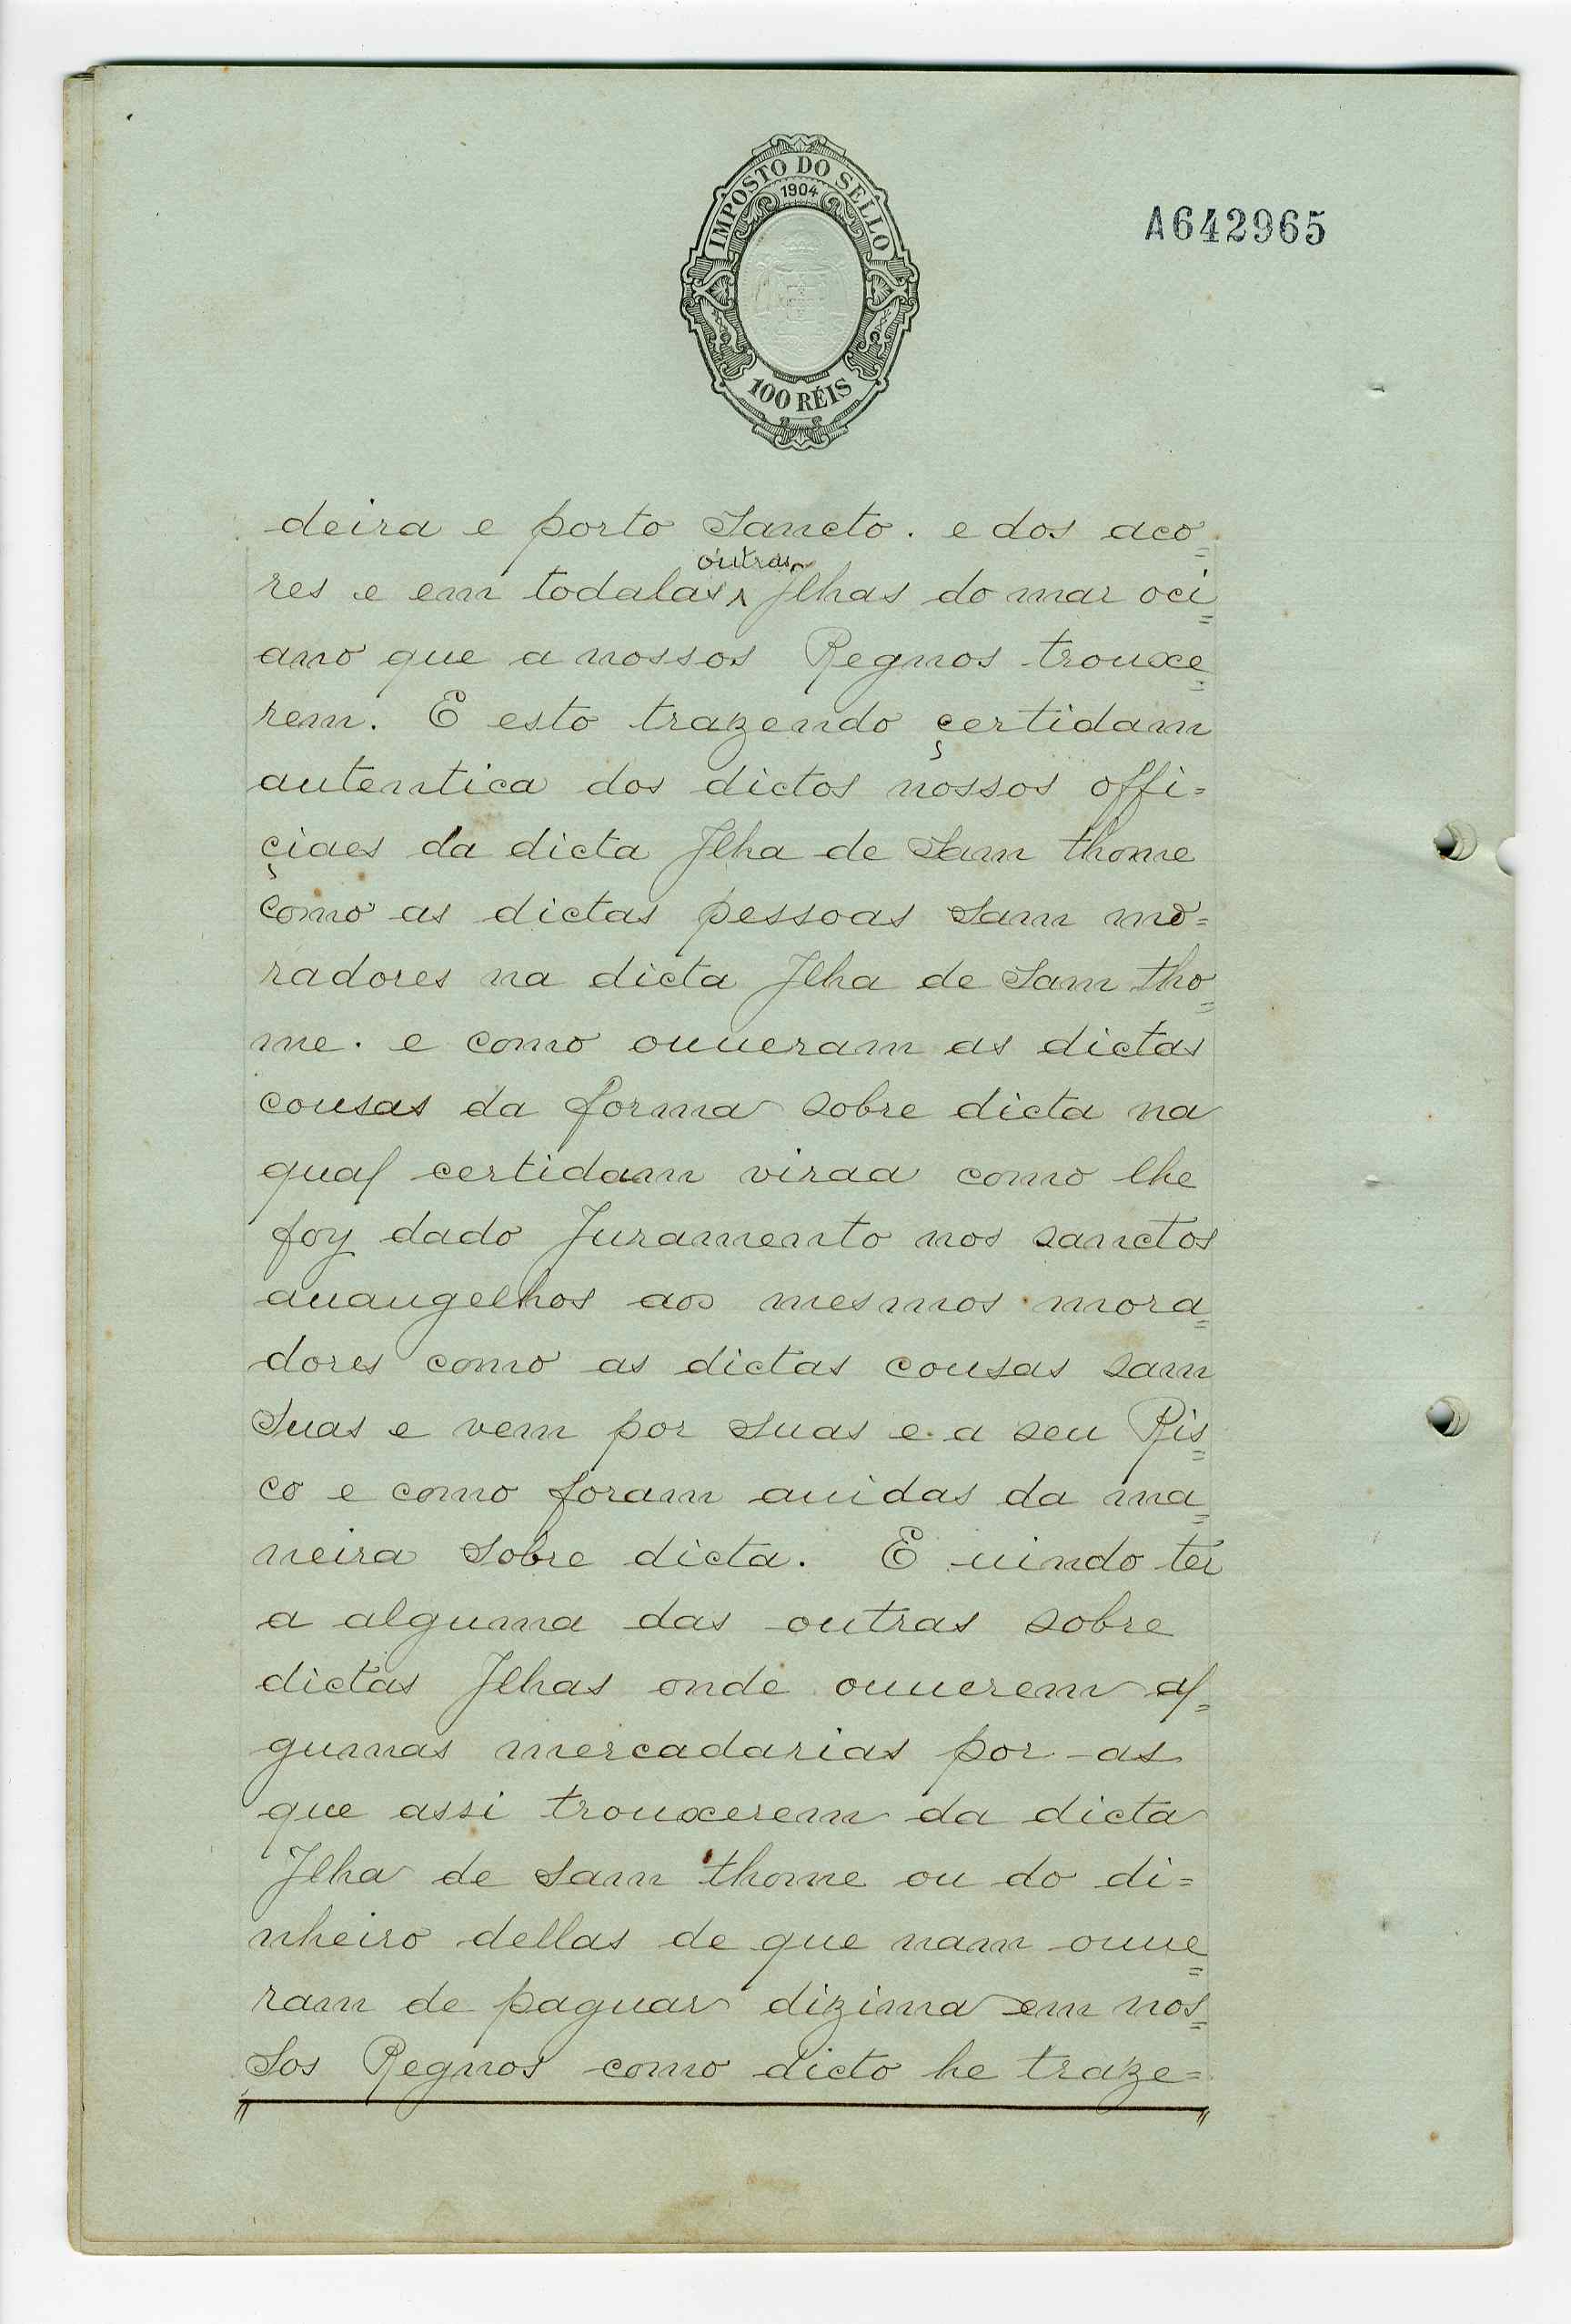 IMPOSTO DO SELLO
1904
100 RÉIS
A642965
deira e porto Sancto. e dos aco=
outras
res e em todalas Jlhas do mar oci=
ano que a nossos Regnos trouxe=
rem. E esto trazendo çertidam
autentica dos dictos nossos offi=
çiaes da dicta Jlha de Sam thome
como as dictas pessoas Sam mo=
radores na dicta Jlha de Sam tho=
me. e como ouueram as dictas
cousas da forma sobre dicta na
qual certidam viraa como lhe
foy dado Juramento nos sanctos
auangelhos aos mesmos mora=
dores como as dictas cousas sam
Suas e vem por suas e a seu Ris=
co e como foram auidas da ma=
neira sobre dicta. E uindo ter
a alguma das outras sobre
dictas Jlhas onde ouuerem al=
gumas mercadarias por as
que assi trouxerem da dicta
Jlha de Sam thome ou do di=
nheiro dellas de que nam ouue=
ram de paguar dizima em nos=
sos Regnos como dicto he traze=